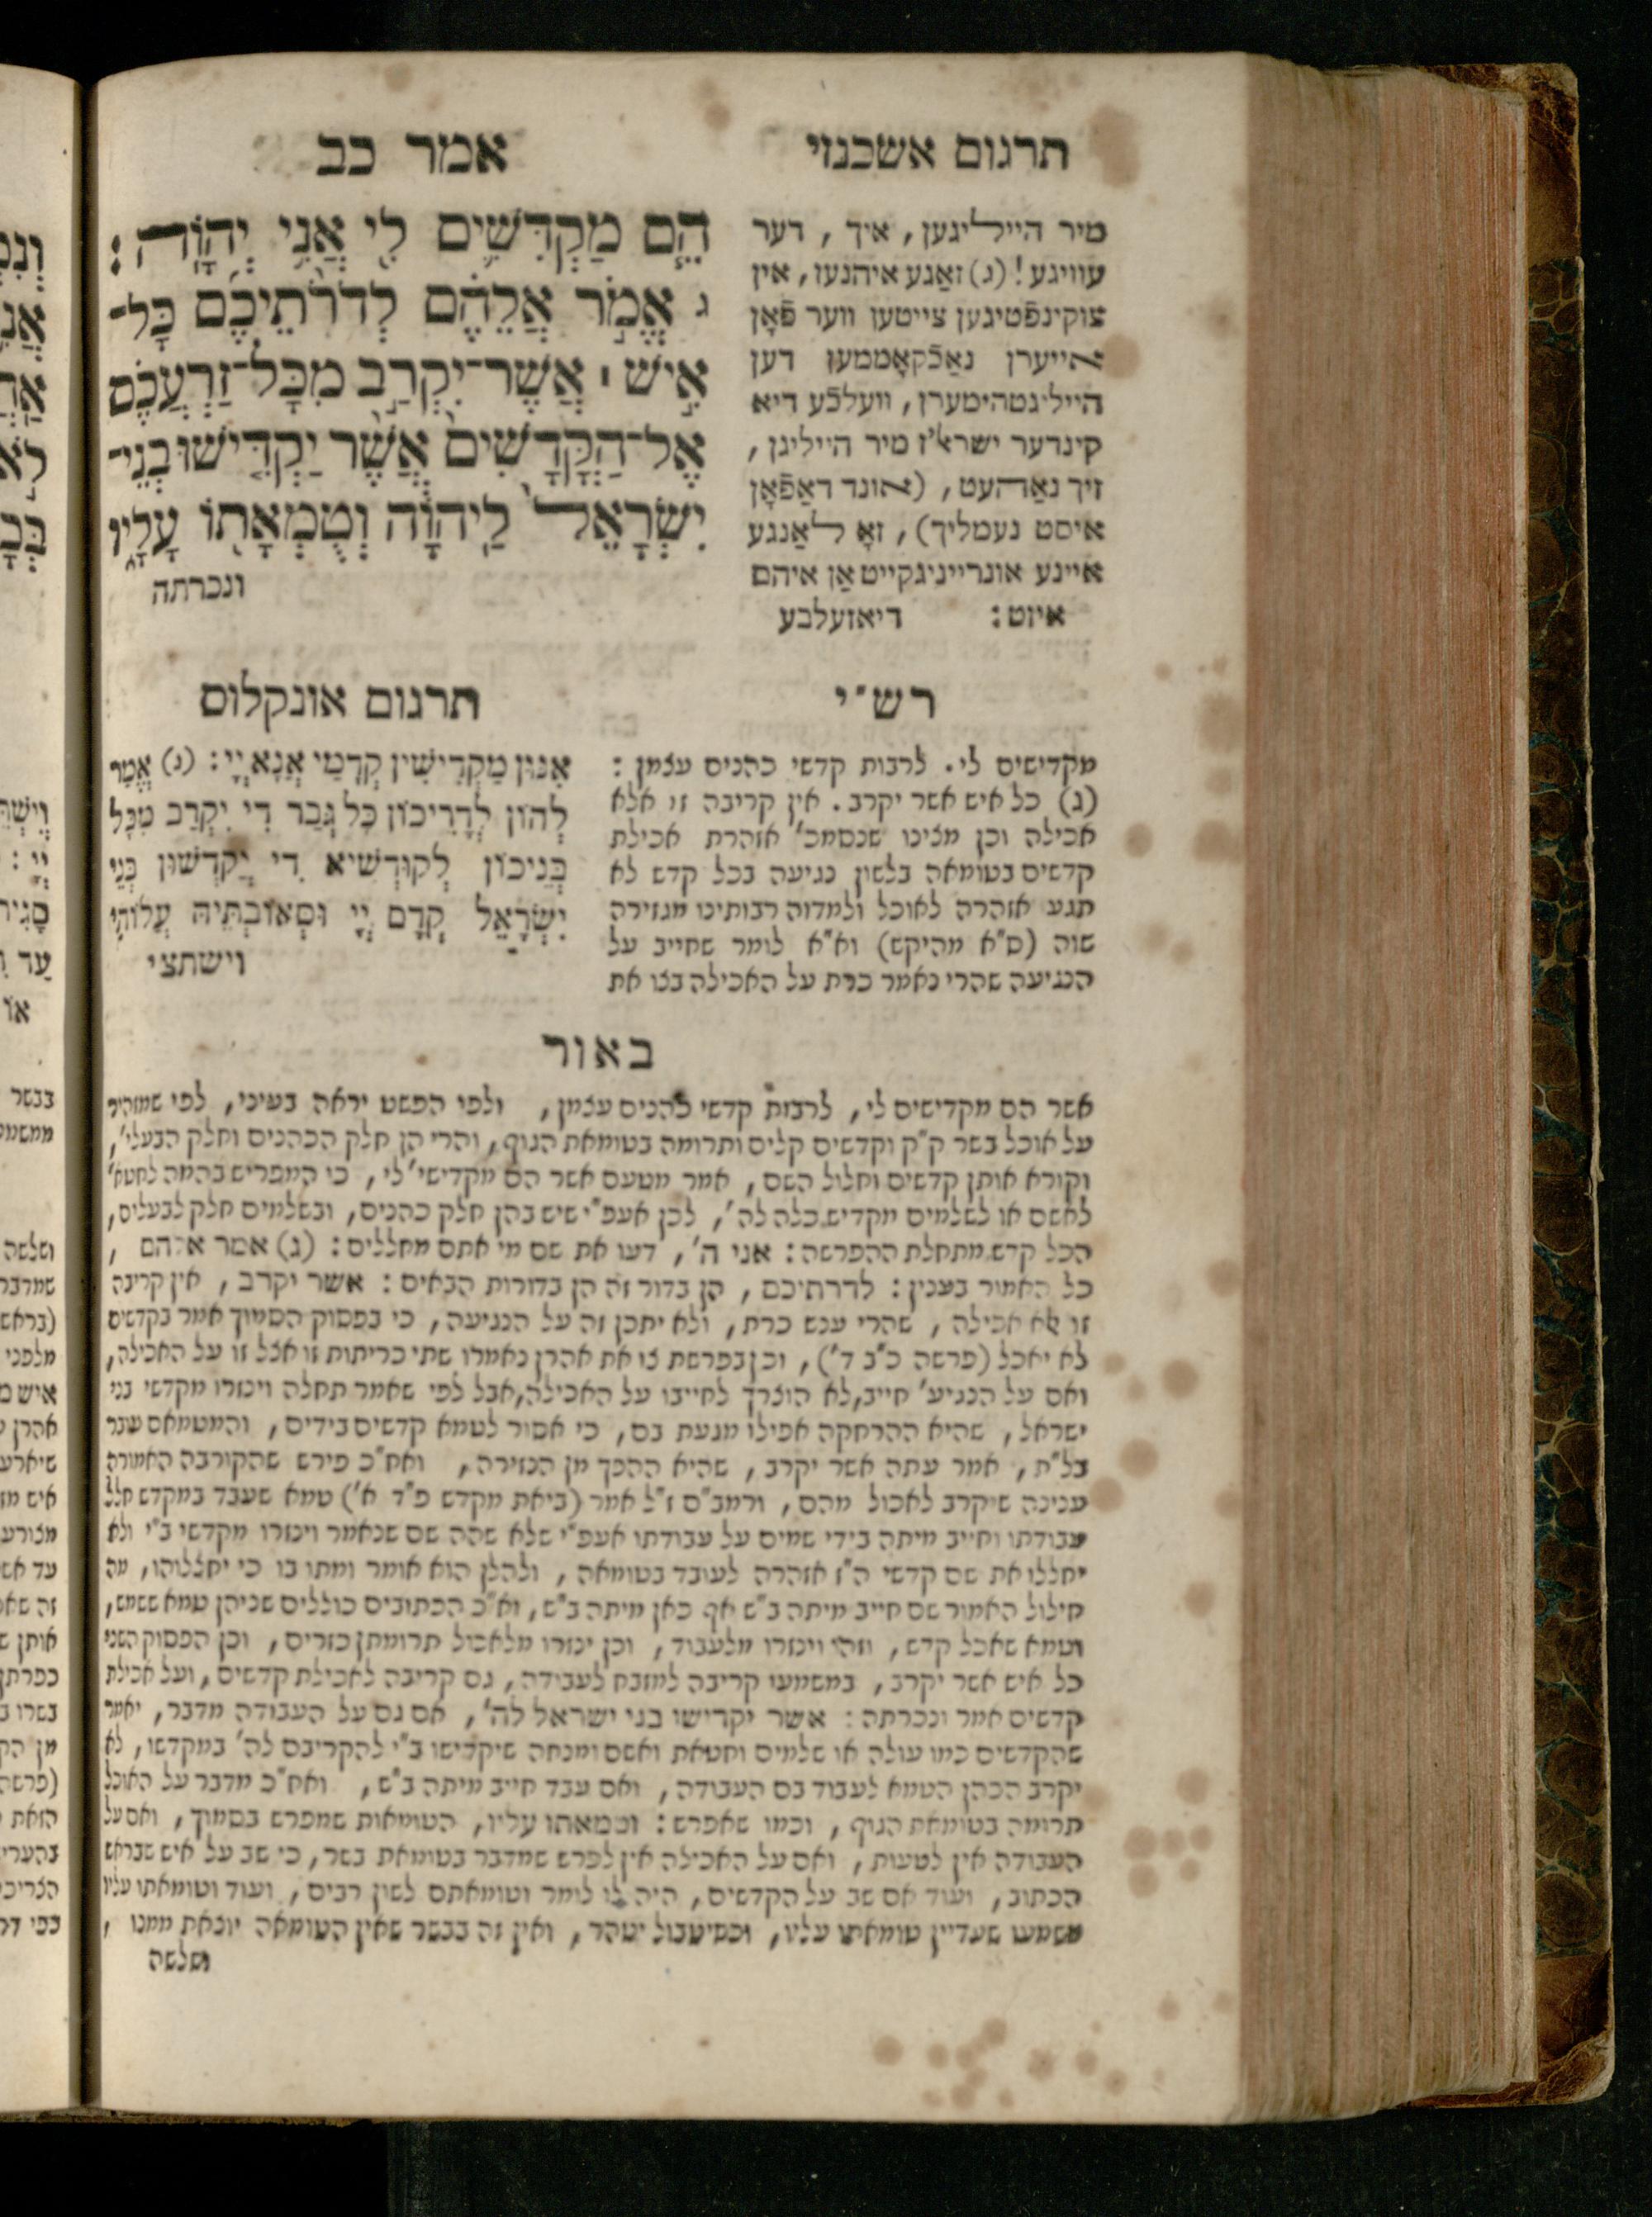 אמר כב
הֵ֥ם מַקְדִּשִׁ֛ים לִ֖י אֲנִ֥י יְהוָֹֽה׃
ג אֱמֹ֣ר אֲלֵהֶ֗ם לְדֹרֹ֨תֵיכֶ֜ם כָּל־
אִ֣ישׁ ׀ אֲשֶׁר־יִקְרַ֣ב מִכָּל־זַרְעֲכֶ֗ם
אֶל־הַקֳּדָשִׁים֙ אֲשֶׁ֨ר יַקְדִּ֤ישׁוּ בְנֵֽי־
יִשְׂרָאֵל֙ לַֽיהוָֹ֔ה וְטֻמְאָת֖וֹ עָלָ֑יו
ונכרתה
תרגום אשכנזי
מיר הייליגען, איך, דער
עוויגע! (ג) זאַגע איהנען, אין
צוקינפֿטיגען צייטען ווער פֿאָן
אייערן נאַכֿקאָממען דען
הייליגטהימערן, וועלכֿע דיא
קינדער ישראל'ז מיר הייליגן,
זיך נאַהעט, (אונד דאַפֿאָן
איסט נעמליך), זאָ לאַנגע
איינע אונרייניגקייט אַן איהם
איזט: דיאזעלבע
רש"י
מקדישים לי. לרבות קדשי כהנים עצמן:
(ג) כל איש אשר יקרב. אין קריבה זו אלא
אכילה וכן מצינו שנסמכ' אזהרת אכילת
קדשים בטומאה בלשון נגיעה בכל קדש לא
תגע אזהרה לאוכל ולמדוה רבותינו מגזירה
שוה (ס"א מהיקש) וא"א לומר שחייב על
הנגיעה שהרי נאמר כרת על האכילה בצו את
תרגום אונקלוס
אִנּוּן מַקְדִּישִׁין קֳדָמַי אֲנָא יְיָ: (ג) אֱמַר
לְהוֹן לְדָרֵיכוֹן כָּל גְּבַר דִּי יִקְרַב מִכָּל
בְּנֵיכוֹן לְקוּדְשַׁיָּא דִּי יְקַדְּשׁוּן בְּנֵי
יִשְׂרָאֵל קֳדָם יְיָ וּסְאוֹבְתֵּיהּ עֲלוֹהִי
וישתצי
באור
אשר הם מקדישים לי, לרבות קדשי כהנים עצמן, ולפי הפשט יראה בעיני, לפי שמזהיר
על אוכל בשר ק"ק וקדשים קלים ותרומה בטומאת הגוף, והרי הן חלק הכהנים וחלק הבעלי',
וקורא אותן קדשים וחלול השם, אמר מטעם אשר הם מקדישי' לי, כי המפריש בהמה לחטא'
לאשם או לשלמים מקדיש כלה לה', לכן אעפ"י שיש בהן חלק כהנים, ובשלמים חלק לבעלים,
הכל קדש מתחלת ההפרשה: אני ה', דעו את שם מי אתם מחללים: (ג) אמר אלהם,
כל האמור בענין: לדרתיכם, הן בדור זה הן בדורות הבאים: אשר יקרב, אין קריבה
זו אלא אכילה, שהרי ענש כרת, ולא יתכן זה על הנגיעה, כי בפסוק הסמוך אמר בקדשים
לא יאכל (פרשה כ"ב ד'), וכן בפרשת צו את אהרן נאמרו שתי כריתות זו אצל זו על האכילה,
ואם על הנגיע' חייב, לא הוצרך לחייבו על האכילה, אבל לפי שאמר תחלה וינזרו מקדשי בני
ישראל, שהיא ההרחקה אפילו מגעת בם, כי אסור לטמא קדשים בידים, והמטמאם עובר
בל"ת, אמר עתה אשר יקרב, שהיא ההפך מן הנזירה, ואח"כ פירש שהקורבה האמורה
ענינה שיקרב לאכול מהם, ורמב"ם ז"ל אמר (ביאת מקדש פ"ד א') טמא שעבד במקדש חלל
עבודתו וחייב מיתה בידי שמים על עבודתו אעפ"י שלא שהה שם שנאמר וינזרו מקדשי ב"י ולא
יחללו את שם קדשי ה"ז אזהרה לעובד בטומאה, ולהלן הוא אומר ומתו בו כי יחללוהו, מה
חילול האמור שם חייב מיתה ב"ש אף כאן מיתה ב"ש, וא"כ הכתובים כוללים שניהן טמא ששמש,
וטמא שאכל קדש, וזהו וינזרו מלעבוד, וכן ינזרו מלאכול תרומתן כזרים, וכן הפסוק השני
כל איש אשר יקרב, במשמעו קריבה למזבח לעבודה, גם קריבה לאכילת קדשים, ועל אכילת
קדשים אמר ונכרתה: אשר יקדישו בני ישראל לה', אם גם על העבודה מדבר, יאמר
שהקדשים כמו עולה או שלמים וחטאת ואשם ומנחה שיקדישו ב"י להקריבם לה' במקדשו, לא
יקרב הכהן הטמא לעבוד בם העבודה, ואם עבד חייב מיתה ב"ש, ואח"כ מדבר על האוכל
תרומה בטומאת הגוף, וכמו שאפרש: וטמאתו עליו, הטומאות שמפרש בסמוך, ואם על
העבודה אין לטעות, ואם על האכילה אין לפרש שמדבר בטומאת בשר, כי שב על איש שבראש
הכתוב, ועוד אם שב על הקדשים, היה לו לומר וטומאתם לשון רבים, ועוד וטומאתו עליו
משמעו שעדיין טומאתו עליו, וכשיטבול יטהר, ואין זה בבשר שאין הטומאה יוצאת ממנו,
ושלשה